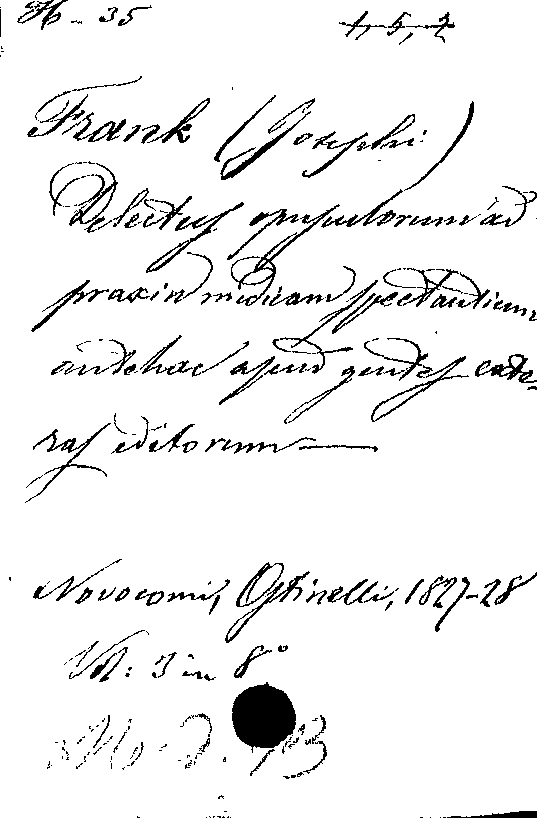 H - 35 1, 5, 2
Frank (Josephi)
Delectus opusculorum ad
praxin medicam spectantium
antehac apud gentes exte-
ras editorum
Novocomi, Ostinelli, 1827-28
Vol: 3 in 8°